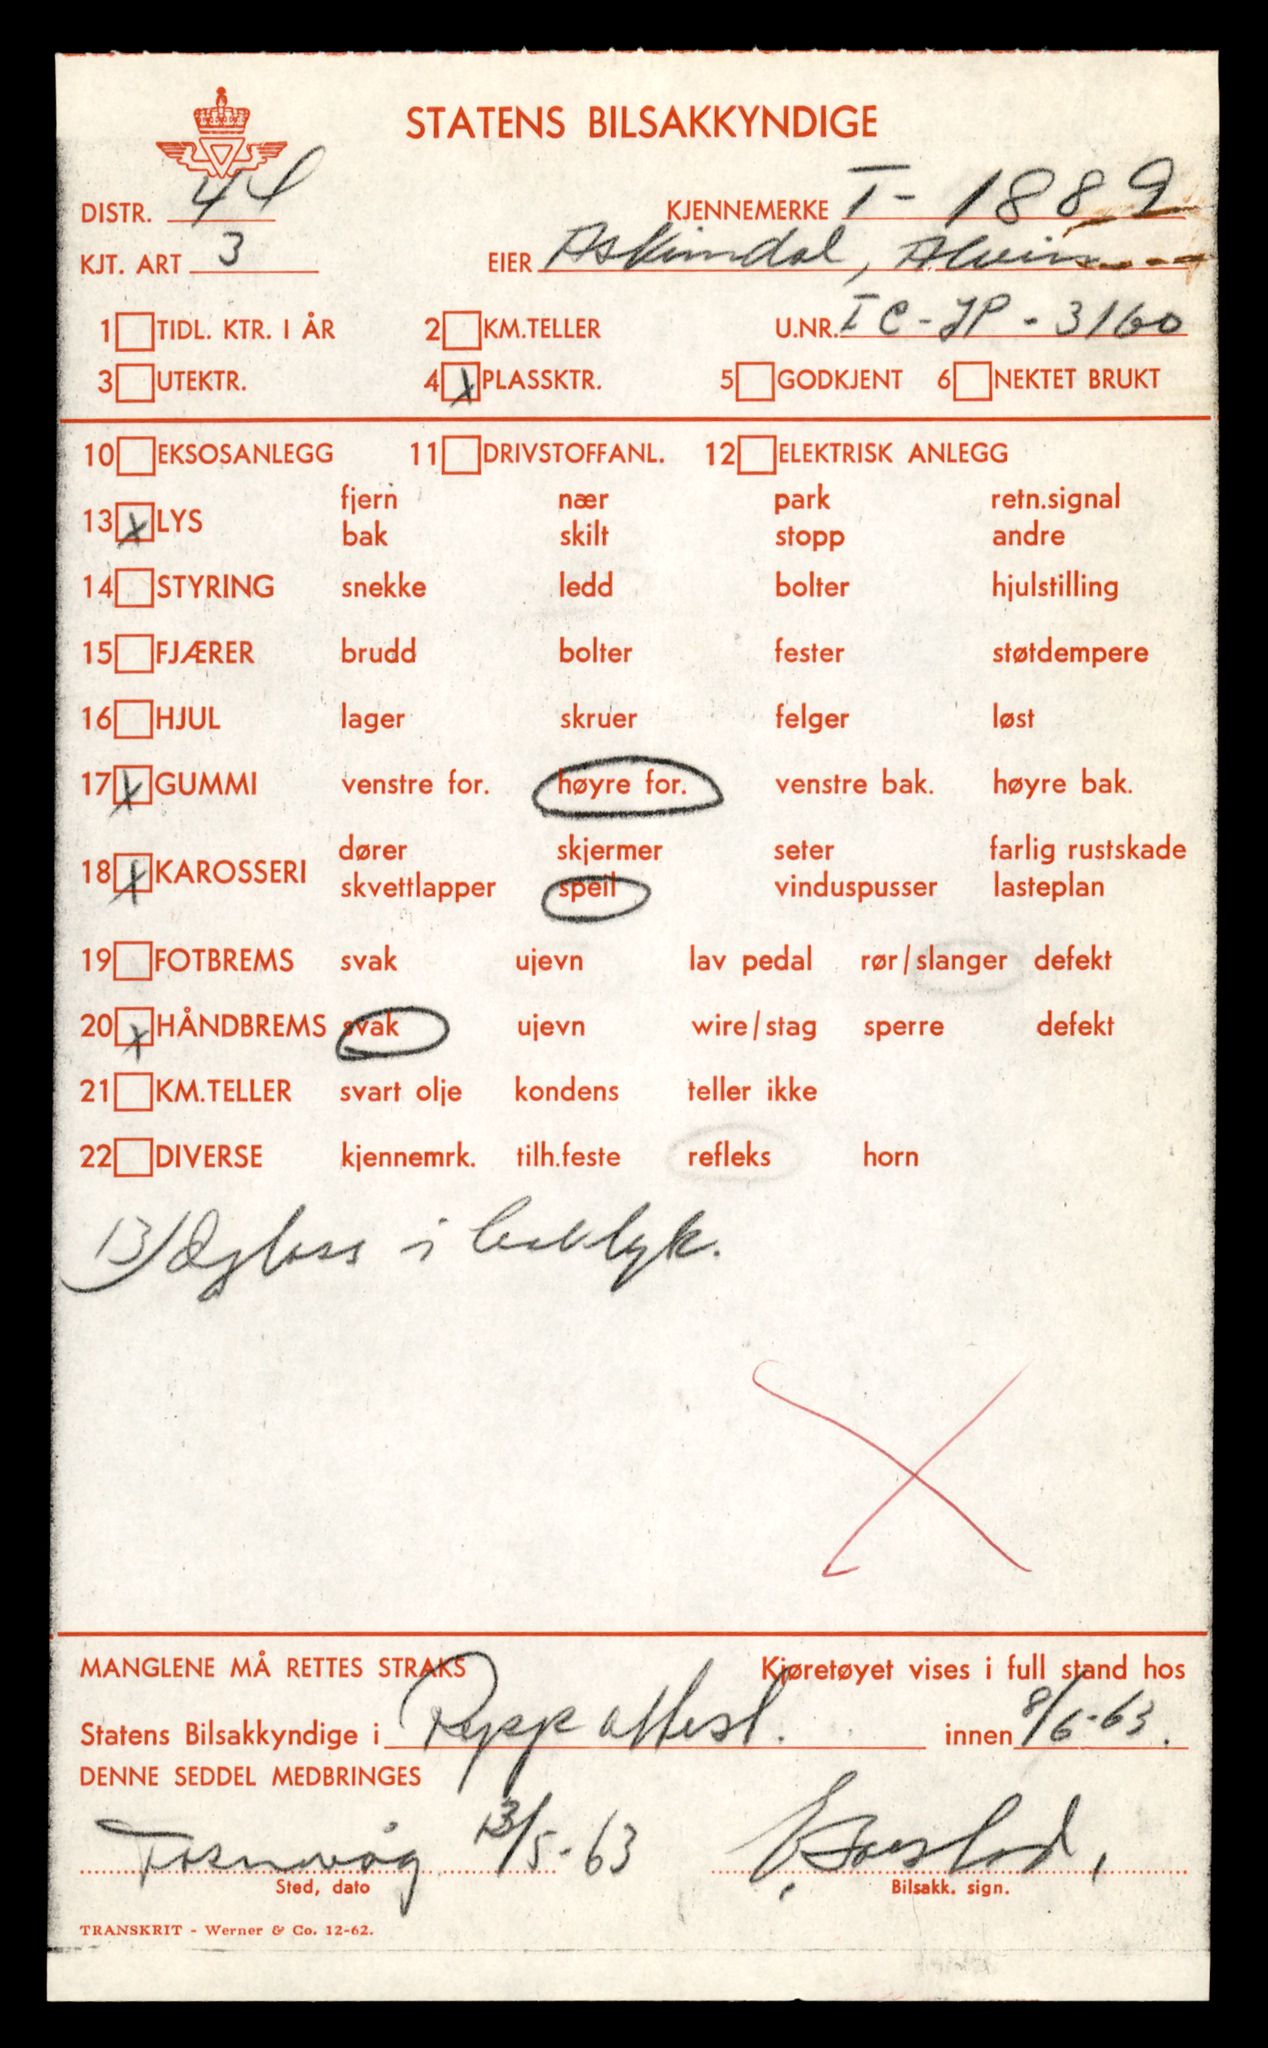 STATENS BILSAKKYNDIGE
DISTR. 44 KJENNEMERKE T-1889
KJT. ART 3 EIER Askimdal, Alvin
1 TIDL. KTR. I ÅR 2 KM.TELLER U.NR. IC-JP-3160
3 UTEKTR. 4 X PLASSKTR. 5 GODKJENT 6 NEKTET BRUKT
10 EKSOSANLEGG 11 DRIVSTOFFANL. 12 ELEKTRISK ANLEGG
fjern nær park retn.signal
13 X LYS
bak skilt stopp andre
14 STYRING snekke ledd bolter hjulstilling
15 FJÆRER brudd bolter fester støtdempere
16 HJUL lager skruer felger løst
17 X GUMMI venstre for. høyre for. venstre bak. høyre bak.
dører skjermer seter farlig rustskade
18 X KAROSSERI
skvettlapper speil vinduspusser lasteplan
19 FOTBREMS svak ujevn lav pedal rør/slanger defekt
20 X HÅNDBREMS svak ujevn wire/stag sperre defekt
21 KM.TELLER svart olje kondens teller ikke
22 DIVERSE kjennemrk. tilh.feste refleks horn
13) glass i baklyk.
MANGLENE MÅ RETTES STRAKS Kjøretøyet vises i full stand hos
Statens Bilsakkyndige i attest. innen 8/6-63.
DENNE SEDDEL MEDBRINGES
Fosnavåg 13/5-63
Sted, dato Bilsakk. sign.
TRANSKRIT - Werner & Co. 12-62.